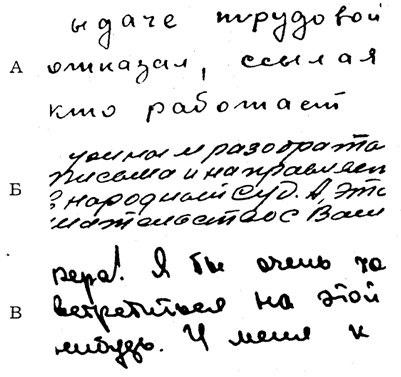 ыдаче трудовой
А отказал, ссылая
кто работает
разобрата
Б письма и направляет
в народный суд. А, это
Ваш
пера! Я бы очень хо
В встретиться на этой
нибудь. У меня к